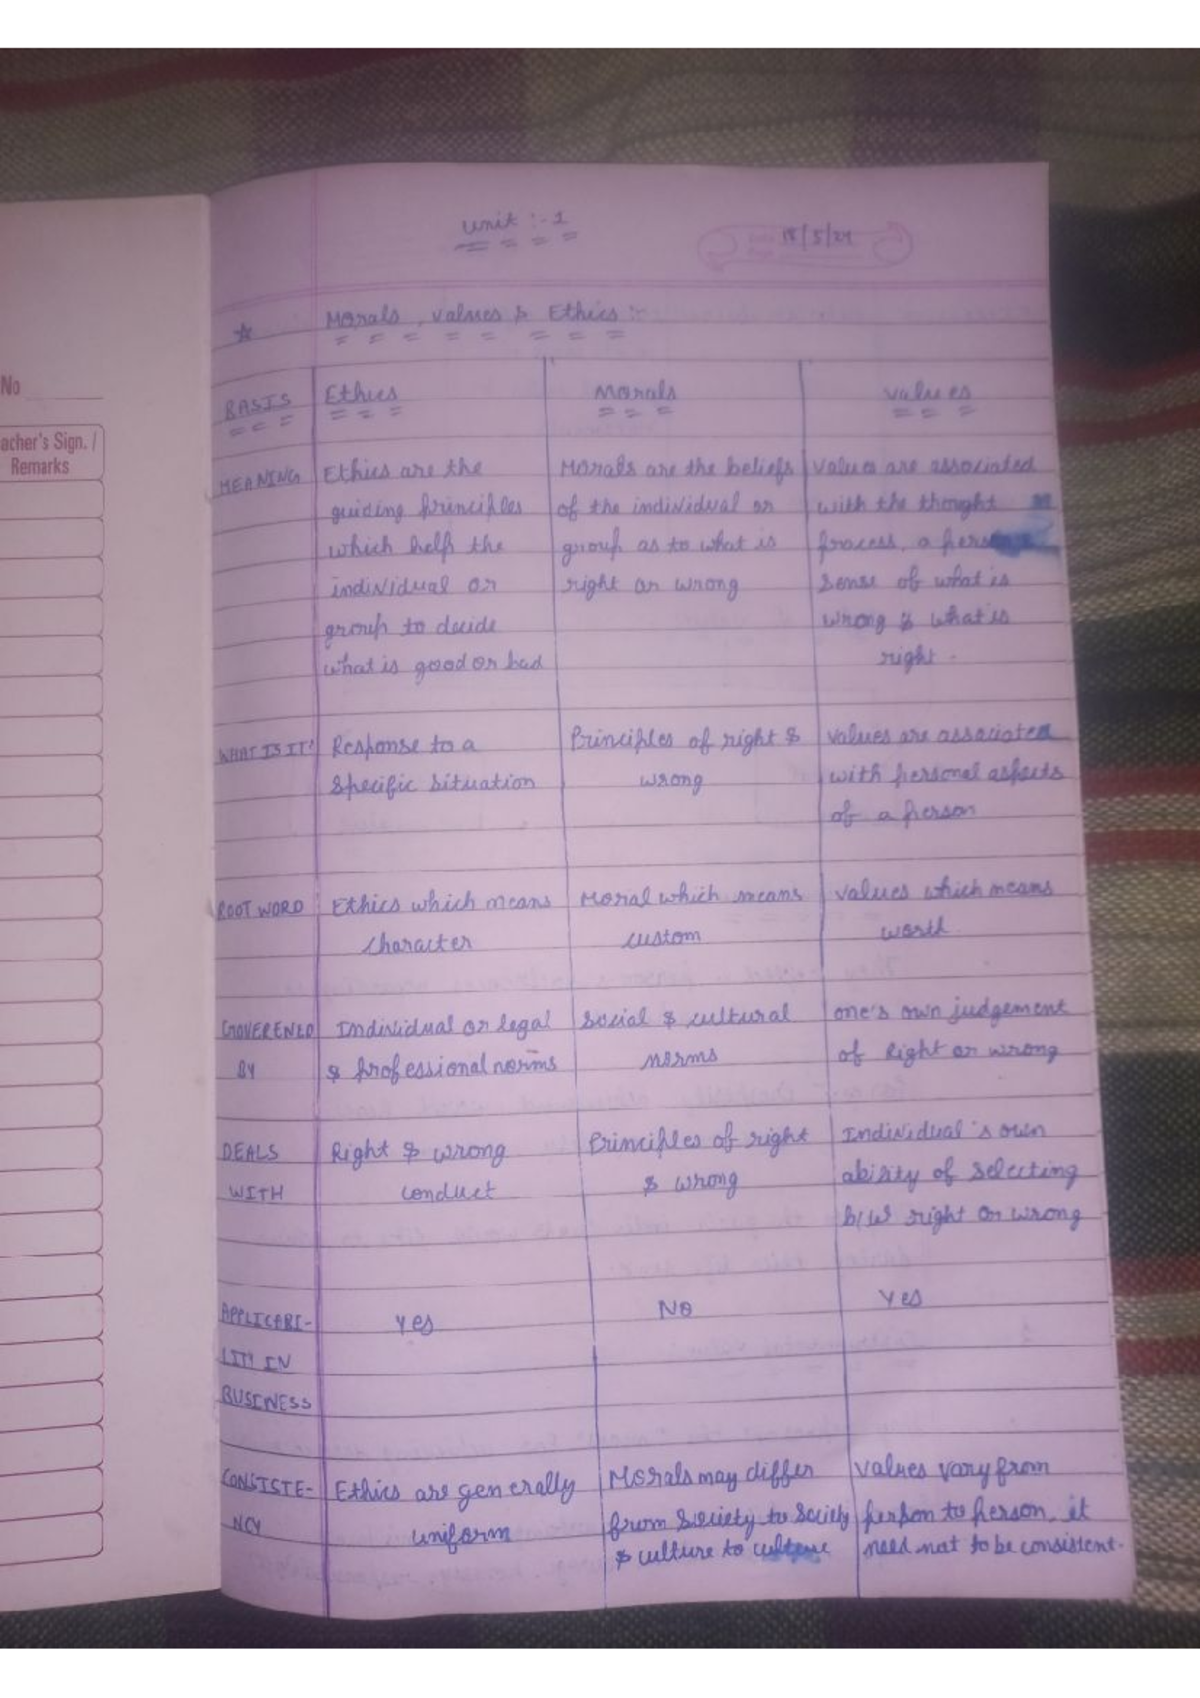 Unit :- 1
18/5/24
No
acher's Sign. /
Remarks
☆ Morals, Values & Ethics :-
BASIS Ethics Morals Values
MEANING Ethics are the Morals are the beliefs Values are associated
guiding principles of the individual or with the thought
which help the group as to what is process, a
individual or right or wrong sense of what is
group to decide wrong & what is
what is good or bad right.
WHAT IS IT? Response to a Principles of right & Values are associated
specific situation wrong with personal aspects
of a person
ROOT WORD Ethics which means Moral which means Values which means
character custom worth
GOVERENED Individual or legal Social & cultural one's own judgement
BY & professional norms norms of Right or wrong
DEALS Right & wrong Principles of right Individual's own
WITH conduct & wrong ability of selecting
b/w right or wrong
APPLICABI- Yes No Yes
LITY IN
BUSINESS
CONSISTE- Ethics are generally Morals may differ Values vary from
NCY uniform from Society to Society person to person, it
& culture to culture need not to be consistent.